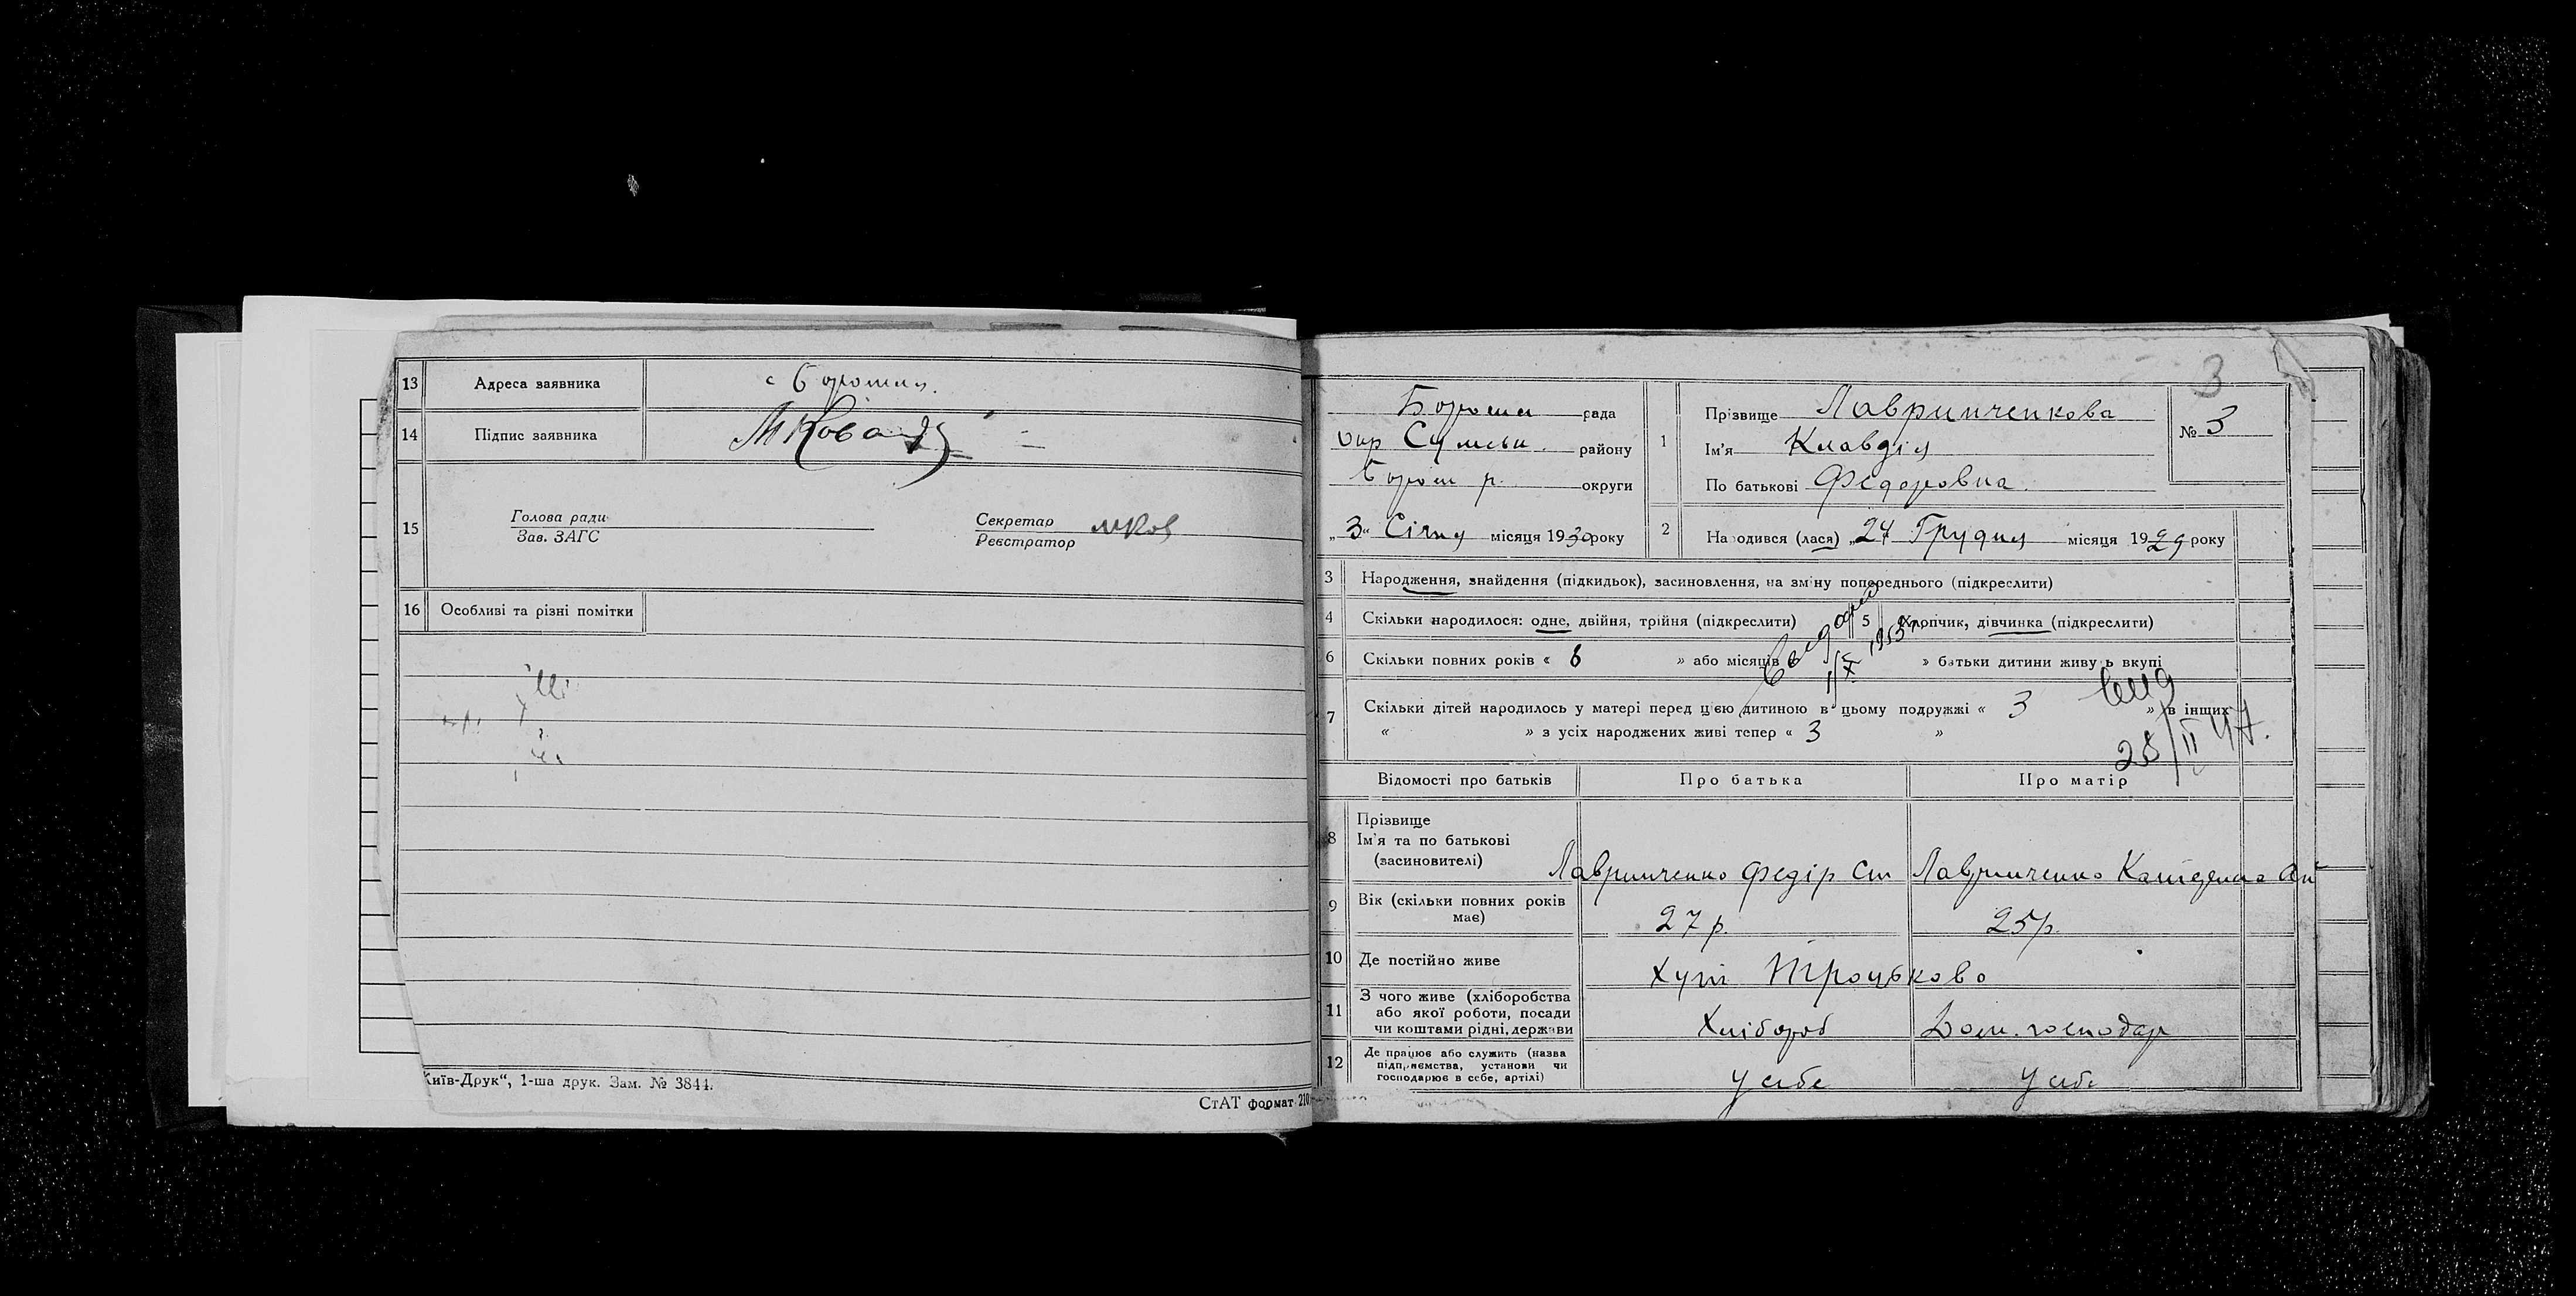 13 Адреса заявника с Боромля.
14 Підпис заявника МКова
15 Голова ради
Зав. ЗАГС
Секретар
Реєстратор мКов
16 Особливі та різні помітки
Київ-Друк“, 1-ша друк. Зам. № 3844.
СтАТ формат 210
3
Боромл рада
окр Сумськ. району
Боромл р. округи
„3“ Січня місяця 1930 року
1 Прізвище Лавринченкова
Ім'я Клавдія
По батькові Федоровна.
№ 3
2 Народився (лася) „27 Грудня місяця 1929 року
3 Народження, знайдення (підкидьок), засиновлення, на зміну попереднього (підкреслити)
4 Скільки народилося: одне, двійня, трійня (підкреслити) 5 Хлопчик, дівчинка (підкреслити)
6 Скільки повних років « 6 » або місяців « » батьки дитини живуть вкупі
7 Скільки дітей народилось у матері перед цією дитиною в цьому подружжі « 3 » в інших
« » з усіх народжених живі тепер « 3 »
28/II 47.
Відомості про батьків Про батька Про матір
8 Прізвище
Ім'я та по батькові
(засиновителі)
Лавринченко Федір Ст Лавринченко Катерина Ан
9 Вік (скільки повних років має) 27 р. 25 р.
10 Де постійно живе Хут Троцьково
11 З чого живе (хліборобства
або якої роботи, посади
чи коштами рідні, держави
Хлібороб Дом. господар
12 Де працює або служить (назва
підприємства, установи чи
господарює в себе, артілі)
У себе У себе